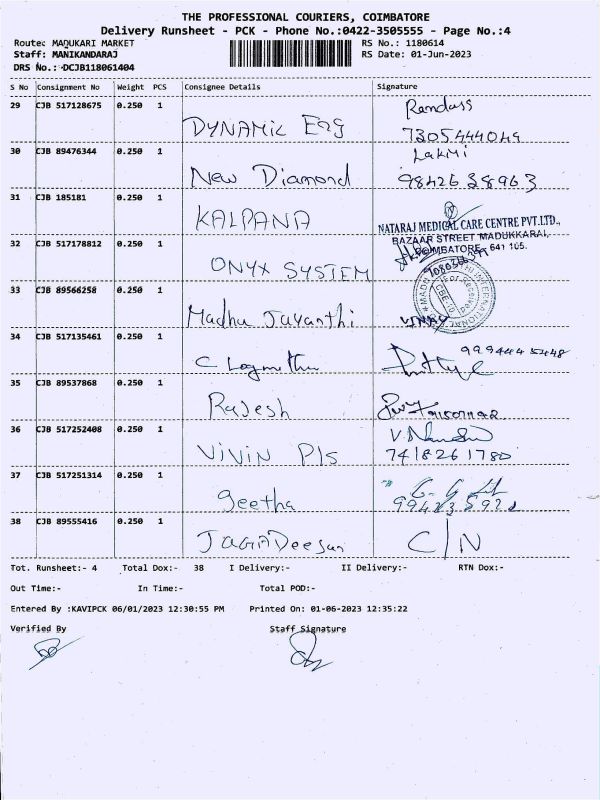 THE PROFESSIONAL COURIERS, COIMBATORE
Delivery Runsheet - PCK - Phone No.:0422-3505555 - Page No.:4
Route: MAQUKARI MARKET RS No.: 1180614
Staff: MANIKANDARAJ RS Date: 01-Jun-2023
DRS No.:-DCJB118061404
S No Consignment No Weight PCS Consignee Details Signature
29 CJB 517128675 0.250 1 DYNAMIC Eng Ramdass
7305444049
30 CJB 89476344 0.250 1 New Diamond Lakmi
9842638963
31 CJB 185181 0.250 1 KALPANA
NATARAJ MEDICAL CARE CENTRE PVT.LTD.,
BAZAAR STREET MADUKKARAI,
COIMBATORE- 641 105.
32 CJB 517178812 0.250 1 ONYX SYSTEM
33 CJB 89566258 0.250 1 Madhu Jayanthi
VINAY
34 CJB 517135461 0.250 1 C Logmuthu
35 CJB 89537868 0.250 1 Rajesh
36 CJB 517252408 0.250 1 VIVIN Pls
7418261780
37 CJB 517251314 0.250 1 geetha
38 CJB 89555416 0.250 1 JAGADeesan C/N
Tot. Runsheet:- 4 Total Dox:- 38 I Delivery:- II Delivery:- RTN Dox:-
Out Time:- In Time:- Total POD:-
Entered By :KAVIPCK 06/01/2023 12:30:55 PM Printed On: 01-06-2023 12:35:22
Verified By Staff Signature